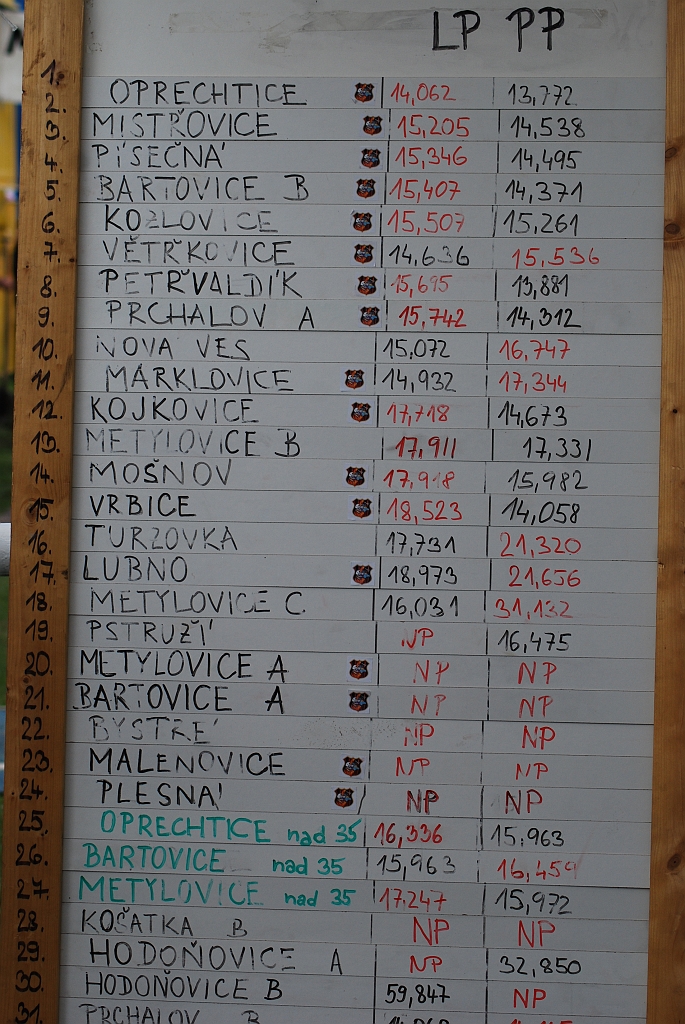 LP PP
1. OPRECHTICE 14,062 13,772
2. MISTŘOVICE 15,205 14,538
3. PÍSEČNÁ 15,346 14,495
4. BARTOVICE B 15,407 14,371
5. KOZLOVICE 15,507 15,261
6. VĚTŘKOVICE 14,636 15,536
7. PETŘVALDÍK 15,695 13,881
8. PRCHALOV A 15,742 14,312
9. NOVA VES 15,072 16,747
10. MARKLOVICE 14,932 17,344
11. KOJKOVICE 17,718 14,673
12. METYLOVICE B 17,911 17,331
13. MOŠNOV 17,918 15,982
14. VRBICE 18,523 14,058
15. TURZOVKA 17,731 21,320
16. LUBNO 18,973 21,656
17. METYLOVICE C. 16,031 31,132
18. PSTRUŽÍ NP 16,475
19. METYLOVICE A NP NP
20. BARTOVICE A NP NP
21. BYSTRÉ NP NP
22. MALENOVICE NP NP
23. PLESNÁ NP NP
24. OPRECHTICE nad 35 16,336 15,963
25. BARTOVICE nad 35 15,963 16,459
26. METYLOVICE nad 35 17,247 15,972
27. KOŠATKA B NP NP
28. HODOŇOVICE A NP 32,850
29. HODOŇOVICE B 59,847 NP
30. PRCHALOV B
31.